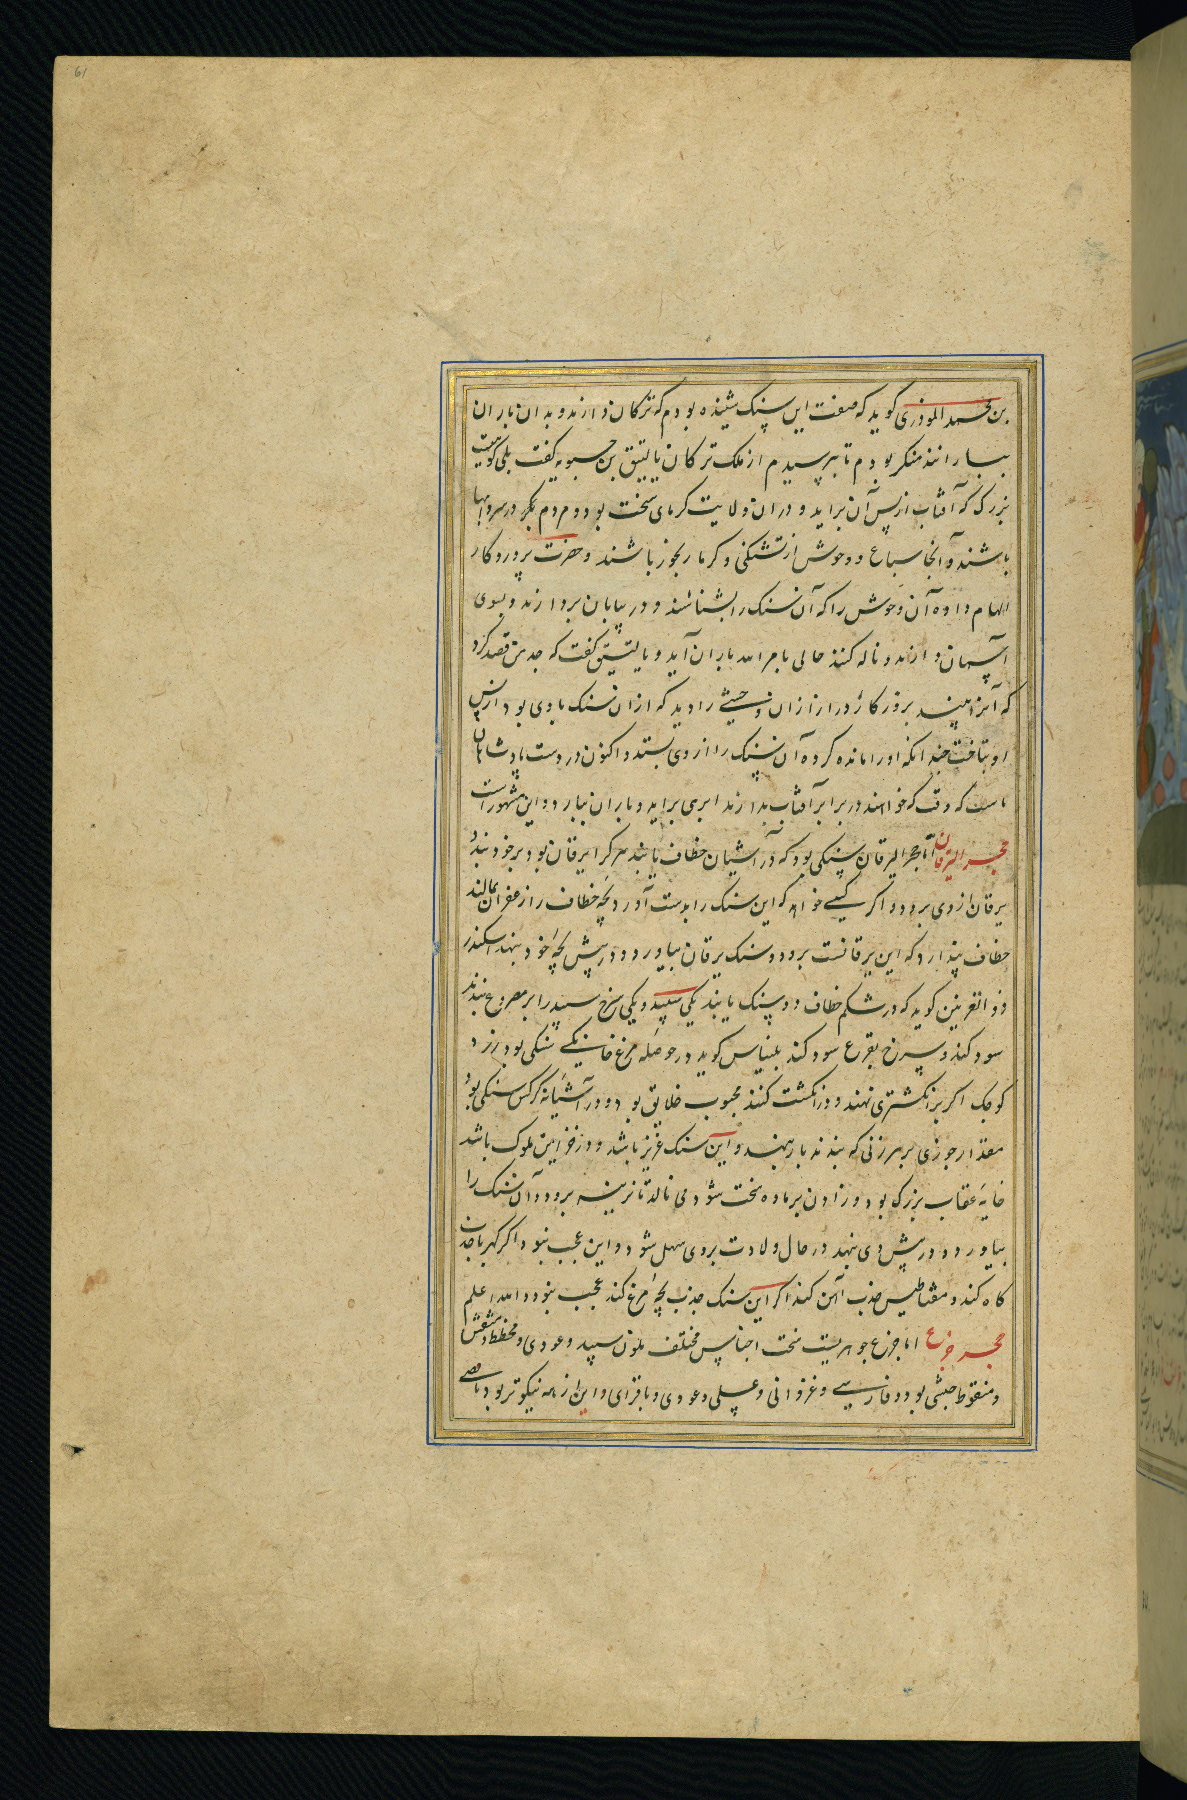 61
بن محمد الموذری کوید که صفت این سنک شنیده بودم که ترکان دارند و بدان باران
ببارانند منکر بودم تا بپرسیدم از ملک ترکان بن حسبویه کفت بلی کوهیست
بزرک که آفتاب از پس آن براید و دران ولایت کرمای سخت بود و مردم در سردابها
باشند و آنجا سباع و وحوش از تشنکی و کرما رنجور باشند و حضرت پروردکار
الهام داده آن وحوش را که آن سنک را بشناسند و در بیابان بردارند و بسوی
آسمان دارند و ناله کنند حالی بامر الله باران آید و کفت که جدش قصد کرد
که آنرا ببیند بروزکار دراز ازان وحشی را دید که ازان سنک با وی بود از پس
او بتاخت چندانکه اورا مانده کرد و آن سنک را از وی بستد و اکنون در دست پادشاهان
ماست که وقت که خواهند در برابر آفتاب بدارند ابری براید و باران ببارد و این مشهور است
حجر الیرقان اما حجر الیرقان سنکی بود که در آشیان خطاف یابند هر کرا یرقان بود بر خود بندد
یرقان از وی برود و اکر کسی خواهد که این سنک را بدست آورد بچه خطاف را زعفران بمالند
خطاف پندارد که این یرقانست برود و سنک یرقان بیاورد و در پیش بچه خود بنهد اسکندر
ذو القرنین کوید که در شکم خطاف دو سنک یابند یکی سپید و یکی سرخ سپید را بر مصروع بندند
سود کند و سرخ بفزع سود کند بلیناس کوید در حوصله مرغ خانکی سنکی بود زرد
کوچک اکر بر انکشتری نهند و در انکشت کنند محبوب خلایق بود و در آشیانه کرکس سنکی بود
مقدار جوزی بر هر زنی که بندند بار بنهد و این سنک عزیز باشد و در خزاین ملوک باشد
خایه عقاب بزرک بود در زادن بر ماده سخت شود می نالد تا نرینه برود و آن سنک را
بیاورد و در پیش وی نهد در حال ولادت بروی سهل شود و این عجب نبود اکر کهربا جذب
کاه کند و مقناطیس جذب آهن کند اکر این سنک جذب بچه مرغ کند عجیب نبود و الله اعلم
حجر جزع اما جزع جوهریست سخت اجناس مختلف ملون سپید و عودی و مخطط و منقش
و منقوط حبشی بود و فارسی و غروانی و عسلی و عودی و این از همه نیکوتر بود